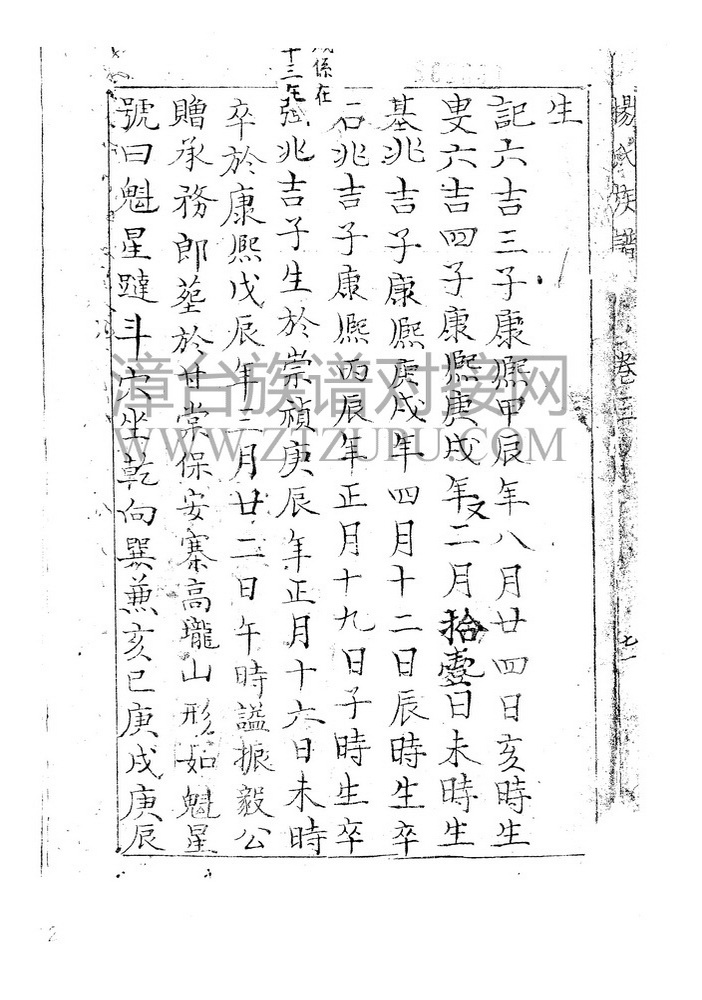 楊氏族譜 卷三 七一
生
記六吉三子康熙甲辰年八月廿四日亥時生
叟六吉四子康熙庚戌年又二月拾壹日未時生
基兆吉子康熙庚戌年四月十二日辰時生卒
石兆吉子康熙丙辰年正月十九日子時生卒
係在
十三年
弦兆吉子生於崇禎庚辰年正月十六日未時
卒於康熙戊辰年三月廿二日午時謚振毅公
贈承務郎墓於甘棠保安寨高瓏山形如魁星
號曰魁星躂斗穴坐乾向巽兼亥巳庚戌庚辰
漳台族谱对接网
WWW.ZTZUPU.COM